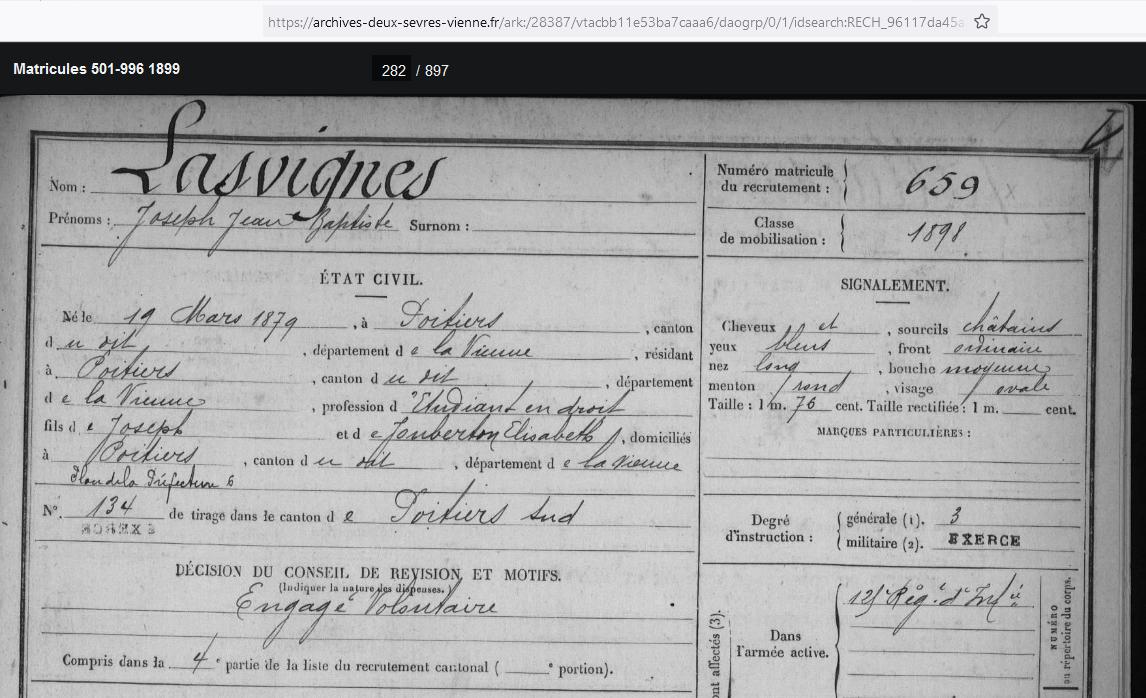 https://archives-deux-sevres-vienne.fr/ark:/28387/vtacbb11e53ba7caaa6/daogrp/0/1/idsearch:RECH_96117da45a
Matricules 501-996 1899
282 / 897
Nom : Lasvignes
Prénoms : Joseph Jean Baptiste Surnom :
ÉTAT CIVIL.
Né le 19 Mars 1879, à Poitiers, canton
du dit, département de la Vienne, résidant
à Poitiers, canton du dit, département
de la Vienne, profession d'Etudiant en droit
fils de Joseph et de Jouberton Elisabeth, domiciliés
à Poitiers, canton du dit, département de la Vienne
Préfecture 6
N°. 134 de tirage dans le canton de Poitiers Sud
DÉCISION DU CONSEIL DE REVISION ET MOTIFS.
(Indiquer la nature des dispenses.)
Engagé Volontaire
Compris dans la 4e partie de la liste du recrutement cantonal ( e portion).
Numéro matricule
du recrutement : 659
Classe
de mobilisation : 1898
SIGNALEMENT.
Cheveux et, sourcils châtains
yeux bleus, front ordinaire
nez long, bouche moyenne
menton rond, visage ovale
Taille : 1 m. 76 cent. Taille rectifiée : 1 m. cent.
MARQUES PARTICULIÈRES :
Degré
d'instruction :
générale (1). 3
militaire (2). EXERCE
Dans
l'armée active.
125 Rég.t d'Inf.ie
NUMÉRO
au répertoire du corps.
ont affectés (3).